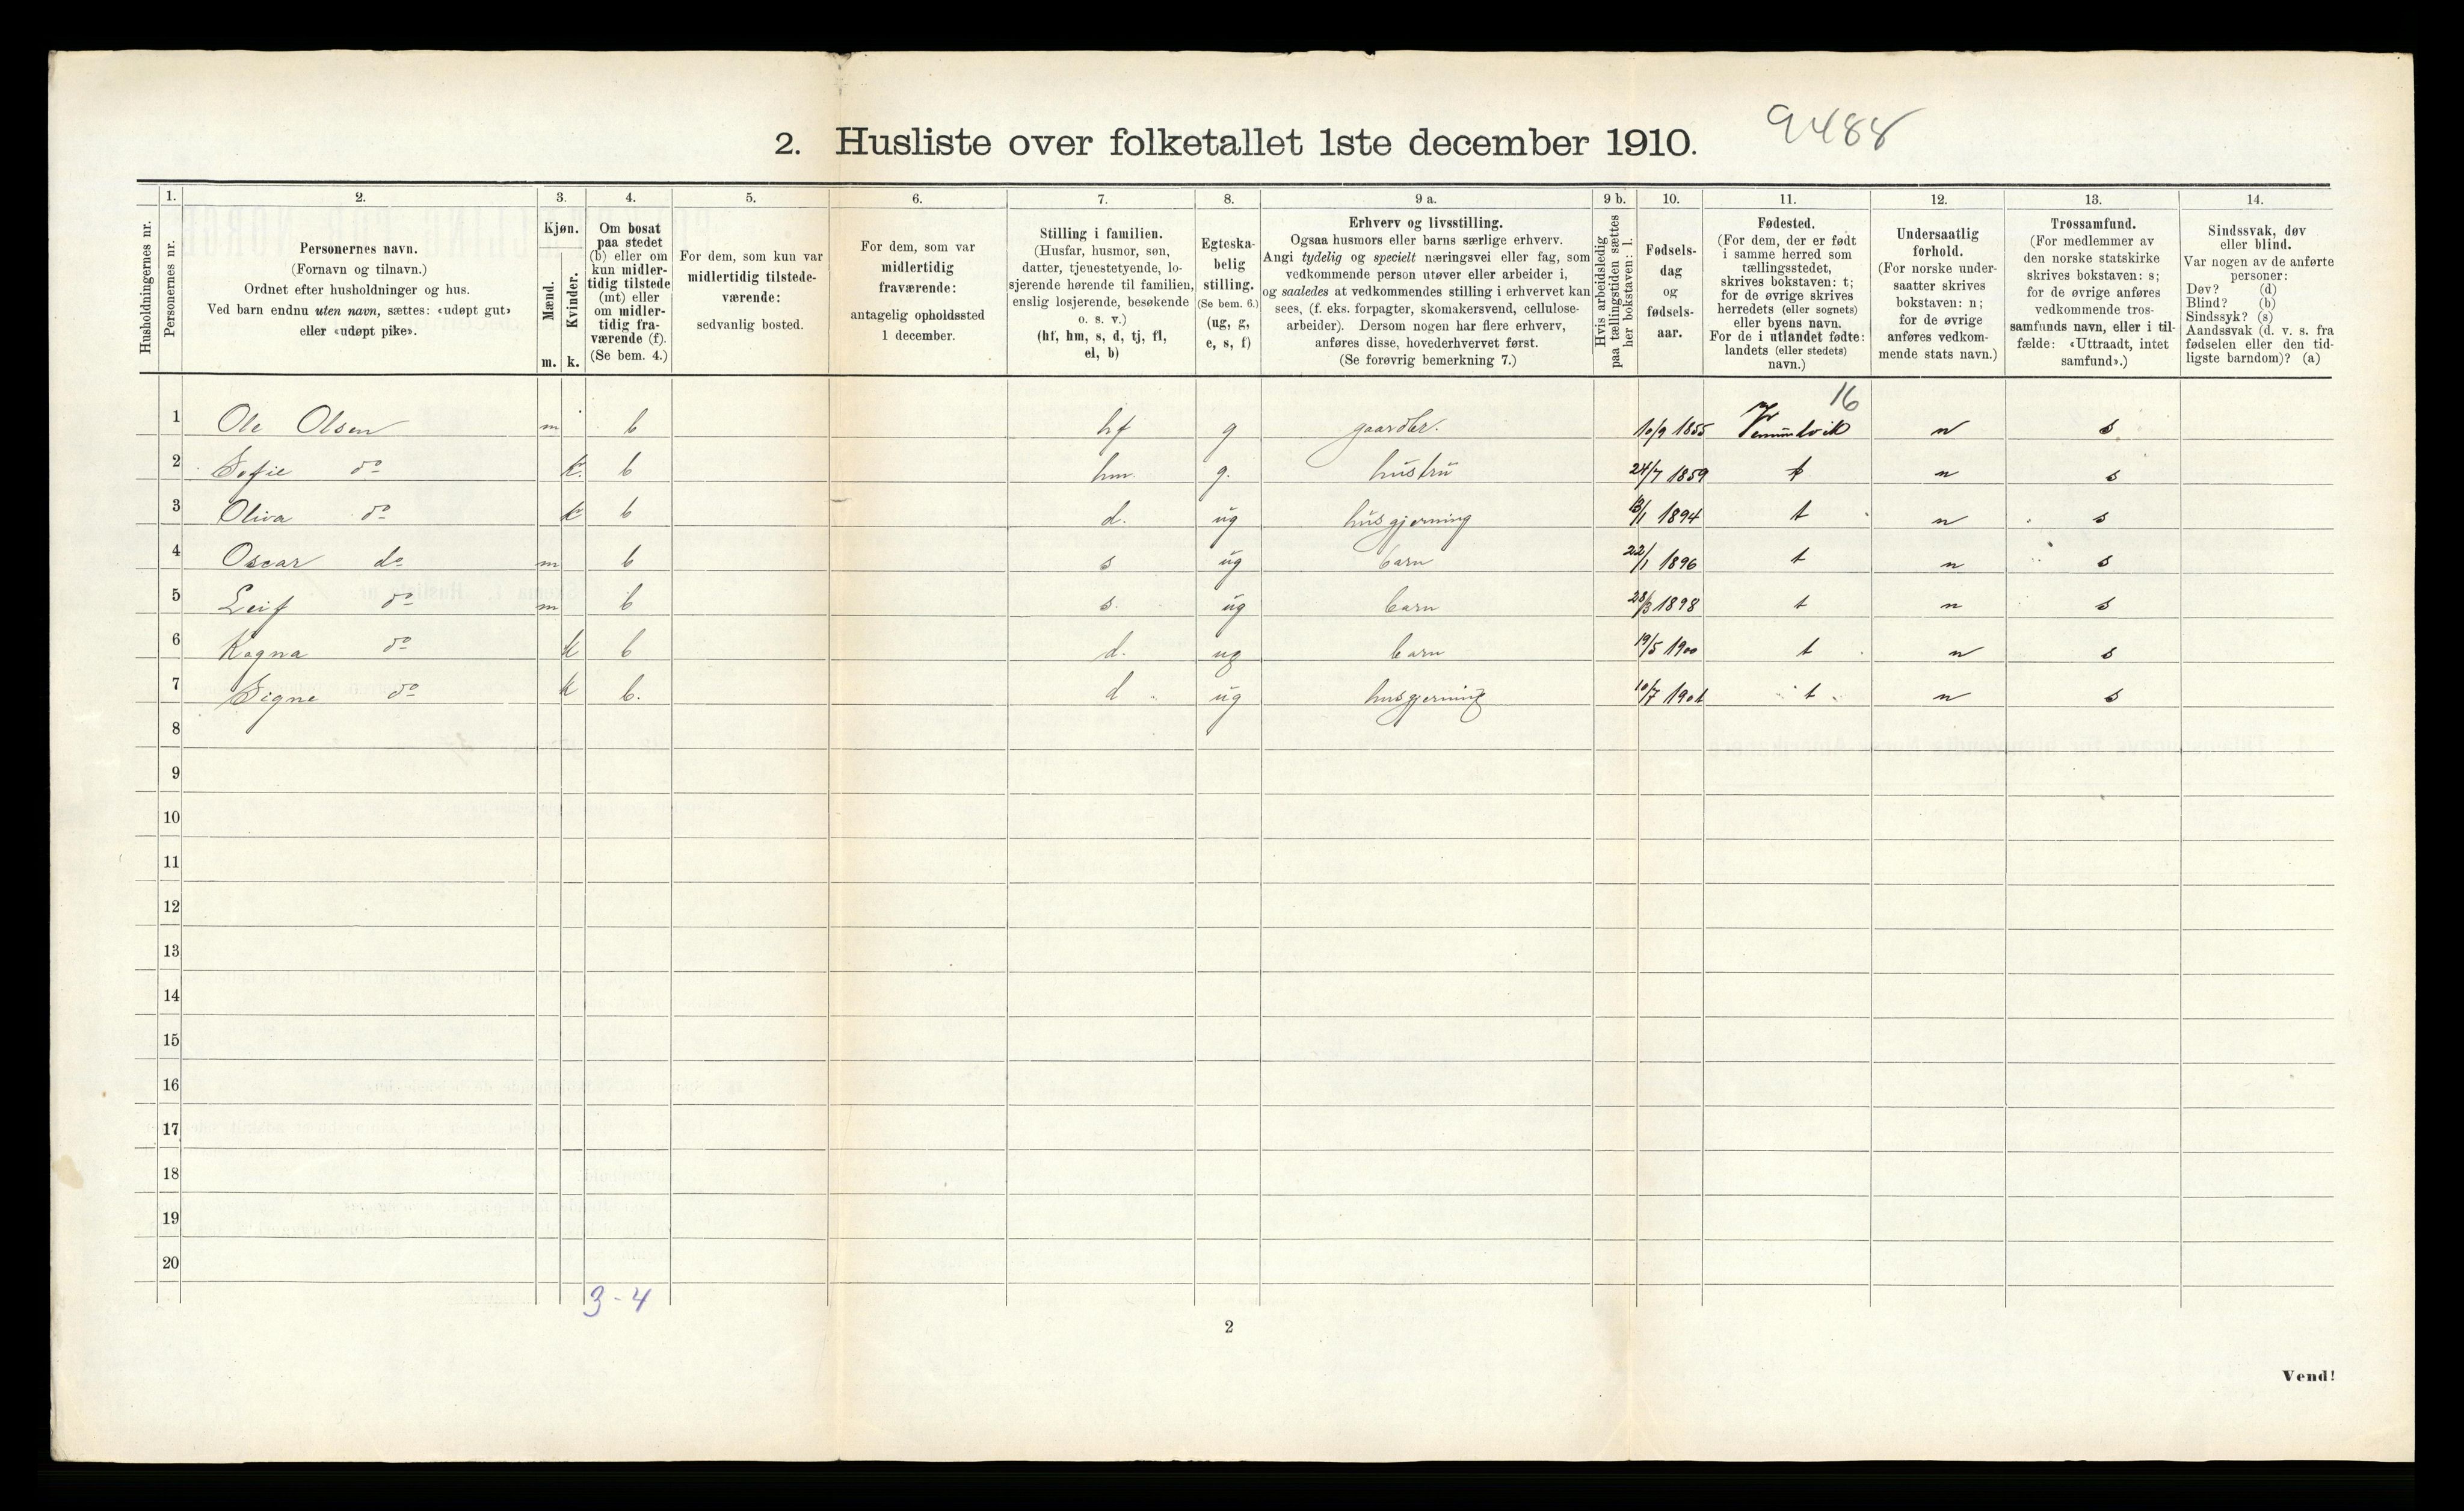 2. Husliste over folketallet 1ste december 1910. 9488
1. 2. 3. 4. 5. 6. 7. 8. 9 a. 9 b. 10. 11. 12. 13. 14.
Husholdningernes nr.
Personernes nr.
Personernes navn.
(Fornavn og tilnavn.)
Ordnet efter husholdninger og hus.
Ved barn endnu uten navn, sættes: «udøpt gut»
eller «udøpt pike».
Kjøn.
Mænd.
Kvinder.
m. k.
Om bosat
paa stedet
(b) eller om
kun midler-
tidig tilstede
(mt) eller
om midler-
tidig fra-
værende (f).
(Se bem. 4.)
For dem, som kun var
midlertidig tilstede-
værende:
sedvanlig bosted.
For dem, som var
midlertidig
fraværende:
antagelig opholdssted
1 december.
Stilling i familien.
(Husfar, husmor, søn,
datter, tjenestetyende, lo-
sjerende hørende til familien,
enslig losjerende, besøkende
o. s. v.)
(hf, hm, s, d, tj, fl,
el, b)
Egteska-
belig
stilling.
(Se bem. 6.)
(ug, g,
e, s, f)
Erhverv og livsstilling.
Ogsaa husmors eller barns særlige erhverv.
Angi tydelig og specielt næringsvei eller fag, som
vedkommende person utøver eller arbeider i,
og saaledes at vedkommendes stilling i erhvervet kan
sees, (f. eks. forpagter, skomakersvend, cellulose-
arbeider). Dersom nogen har flere erhverv,
anføres disse, hovederhvervet først.
(Se forøvrig bemerkning 7.)
Hvis arbeidsledig
paa tællingstiden sættes
her bokstaven: l.
Fødsels-
dag
og
fødsels-
aar.
Fødested.
(For dem, der er født
i samme herred som
tællingsstedet,
skrives bokstaven: t;
for de øvrige skrives
herredets (eller sognets)
eller byens navn.
For de i utlandet fødte:
landets (eller stedets)
navn.)
Undersaatlig
forhold.
(For norske under-
saatter skrives
bokstaven: n;
for de øvrige
anføres vedkom-
mende stats navn.)
Trossamfund.
(For medlemmer av
den norske statskirke
skrives bokstaven: s;
for de øvrige anføres
vedkommende tros-
samfunds navn, eller i til-
fælde: «Uttraadt, intet
samfund».)
Sindssvak, døv
eller blind.
Var nogen av de anførte
personer:
Døv? (d)
Blind? (b)
Sindssyk? (s)
Aandssvak (d. v. s. fra
fødselen eller den tid-
ligste barndom)? (a)
16
1 Ole Olsen m b hf g gaardbr. 10/9 1855 Vemundvik n s
2 Sofie do k b hm. g. hustru 24/7 1859 t n s
3 Oliva do k b d. ug husgjerning 1894 t n s
4 Oscar do m b s ug barn 22/1 1896 t n s
5 Leif do m b s. ug barn 28/3 1898 t n s
6 Ragna do k b d. ug barn 19/5 1900 t n s
7 Signe do k b. d ug husgjerning 10/7 1901 t n s
8
9
10
11
12
13
14
15
16
17
18
19
20
3 - 4
2
Vend!